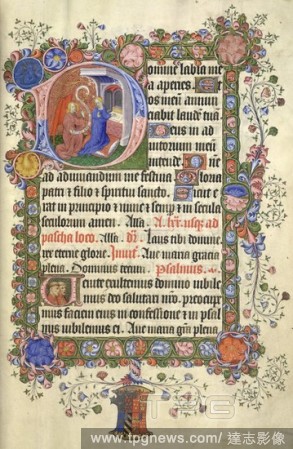 Domine labia
mea aperies. Et
os meū annun
ciabit laudē tuā
Deus in ad
iutorium meū
intende. Dne
ad adiuuandum me festina Gloria
patri & filio & spiritui sancto. Sicut e
rat in principio & nunc & semp & in secula
seculorum amen. Alla. A lxx. usq; ad
pascha loco. Alla. Laus tibi domine
rex eterne glorie. Inuit. Aue maria gracia
plena. Dominus tecum. Psalmus.
Uenite exultemus domino iubile
mus deo salutari nro. preocupe
mus faciem eius in confessione & in psal
mis iubilemus ei. Aue maria grā plena
TPG
www.tpgnews.com / 達志影像